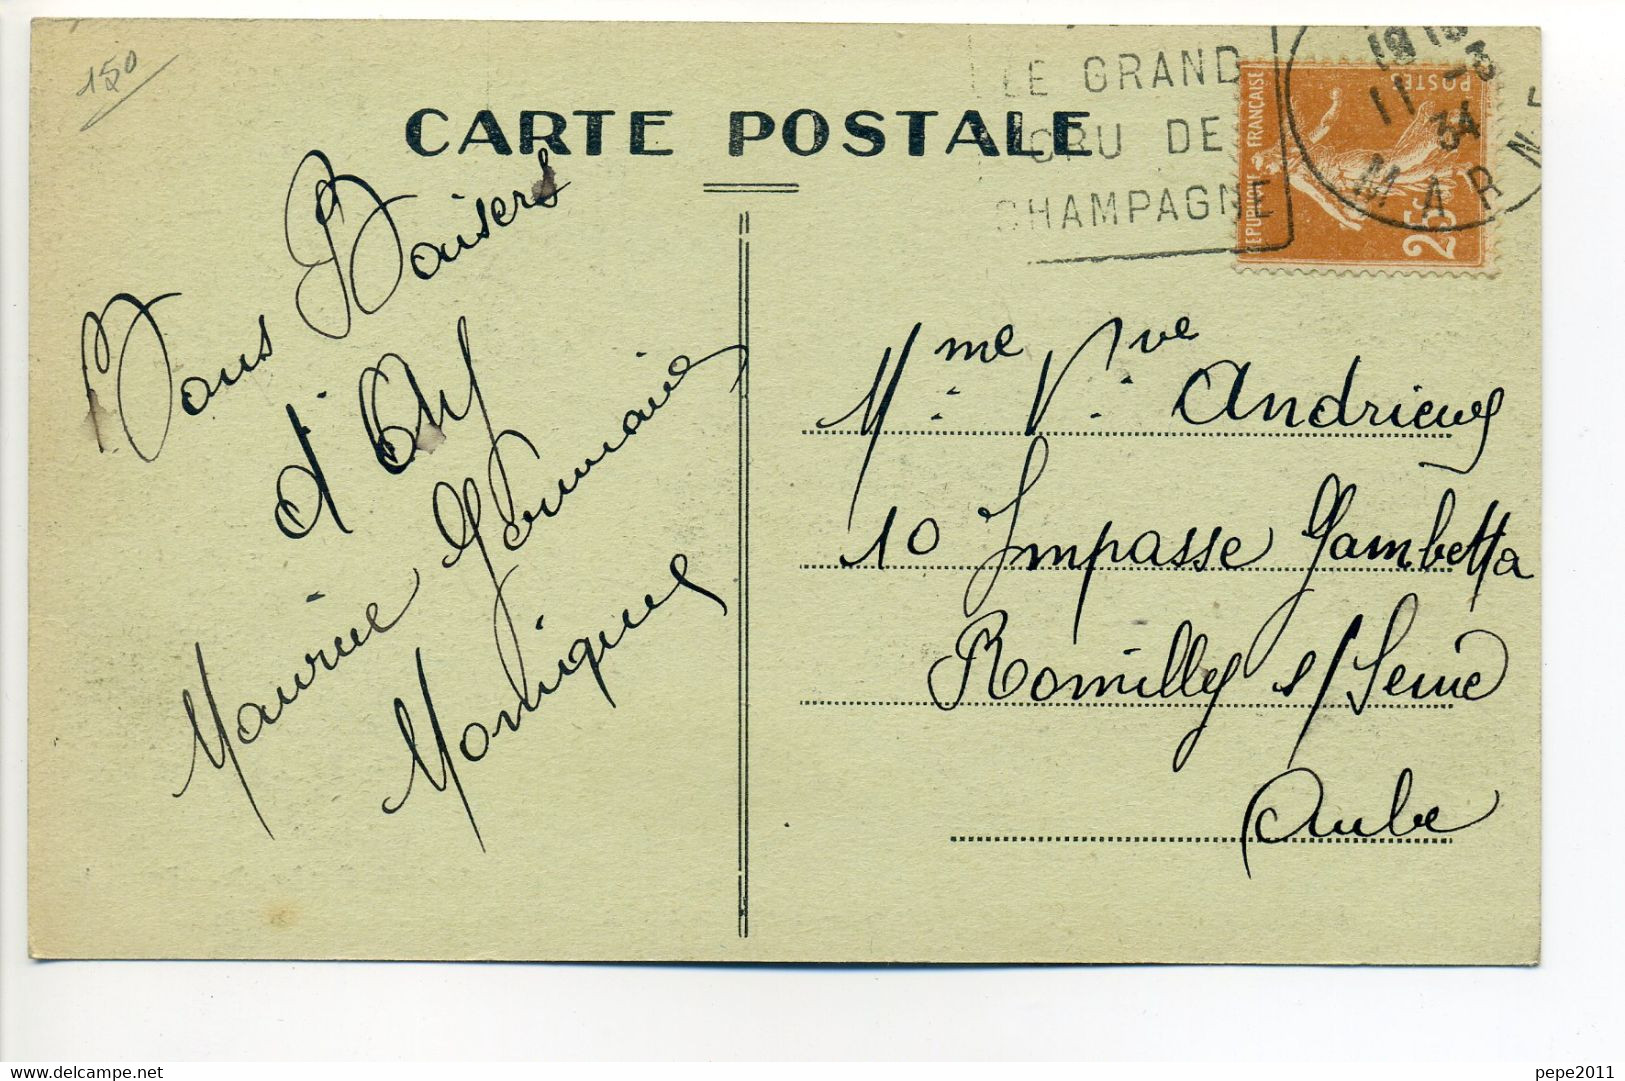 150
CARTE POSTALE
LE GRAND
CRU DE
CHAMPAGNE
11
34
MARNE
REPUBLIQUE FRANÇAISE
POSTES
25c
Bons Baisers
d'Ay
Maurice Germaine
Monique
Mme Vve Andrieux
10 Impasse Gambetta
Romilly s/Seine
Aube
delcampe.net
pepe2011